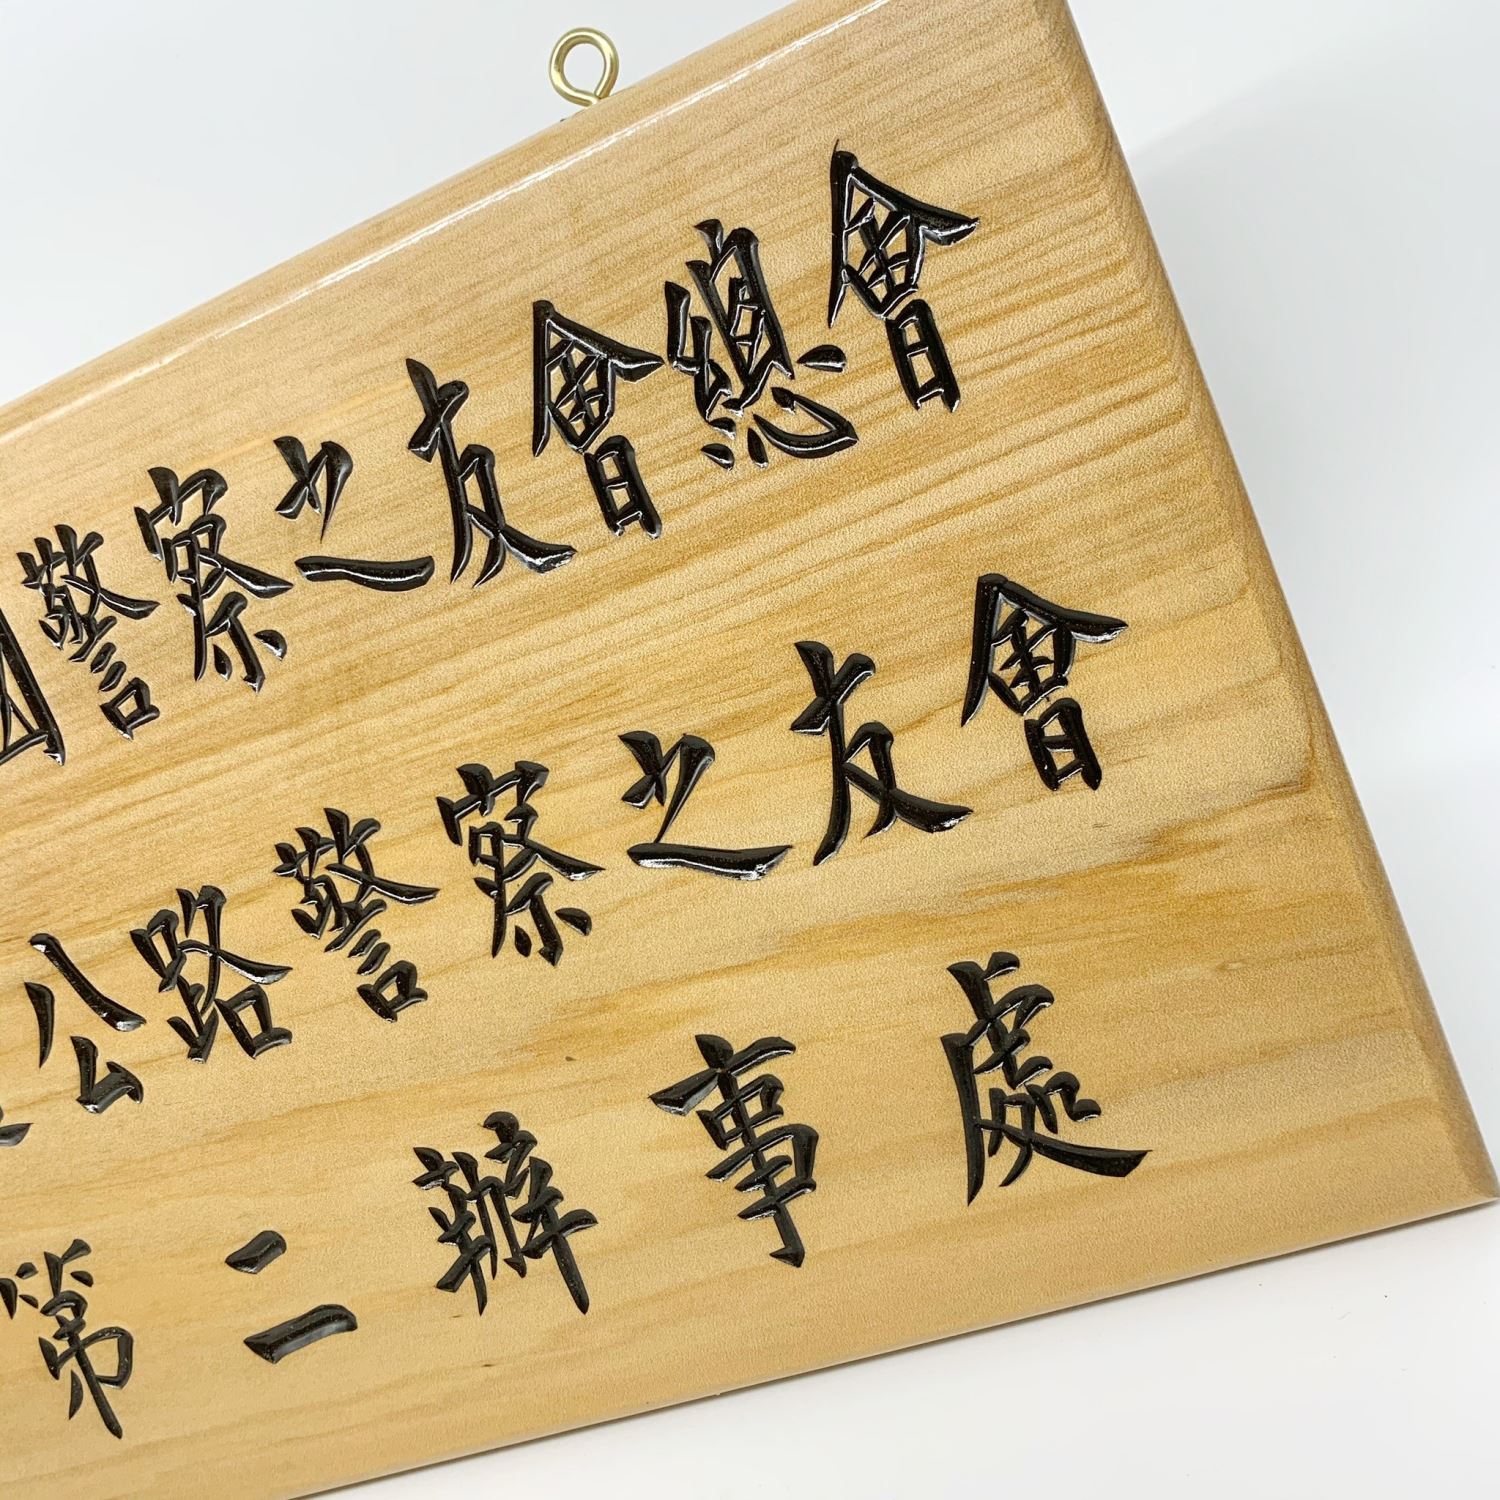 國警察之友會總會
公路警察之友會
第二辦事處